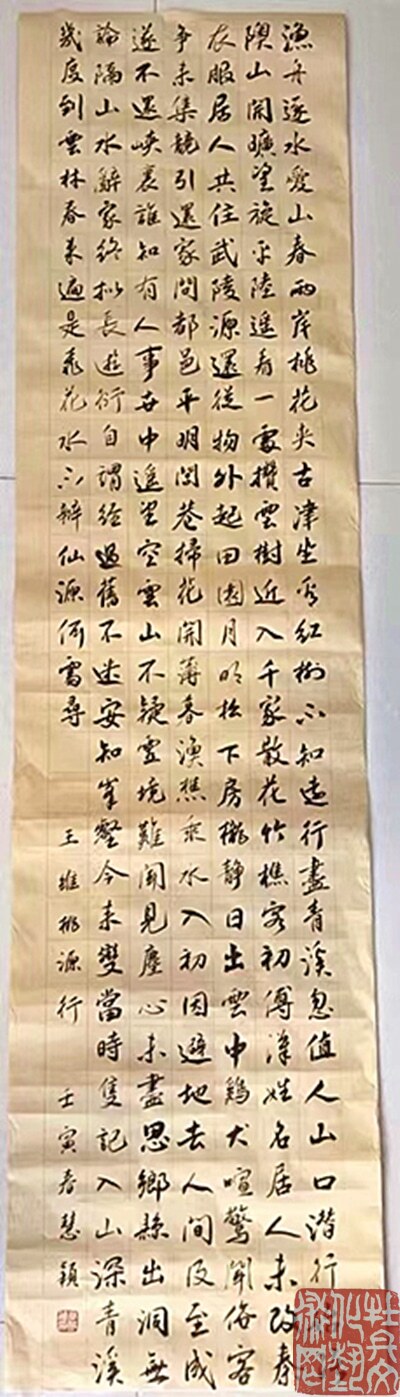 漁舟逐水愛山春兩岸桃花夾古津坐看紅樹不知遠行盡青溪忽值人山口潛行
隩山開曠望旋平陸遙看一處攢雲樹近入千家散花竹樵客初傳漢姓名居人未改秦
衣服居人共住武陵源還從物外起田園月明松下房櫳靜日出雲中鷄犬喧驚聞俗客
爭來集競引還家問都邑平明閭巷掃花開薄暮漁樵乘水入初因避地去人間及至成
遂不還峽裏誰知有人事世中遙望空雲山不疑靈境難聞見塵心未盡思鄉縣出洞無
論隔山水辭家終擬長遊衍自謂經過舊不迷安知峯壑今來變當時隻記入山深青溪
幾度到雲林春來遍是桃花水不辨仙源何處尋
王維桃源行
壬寅春慧穎